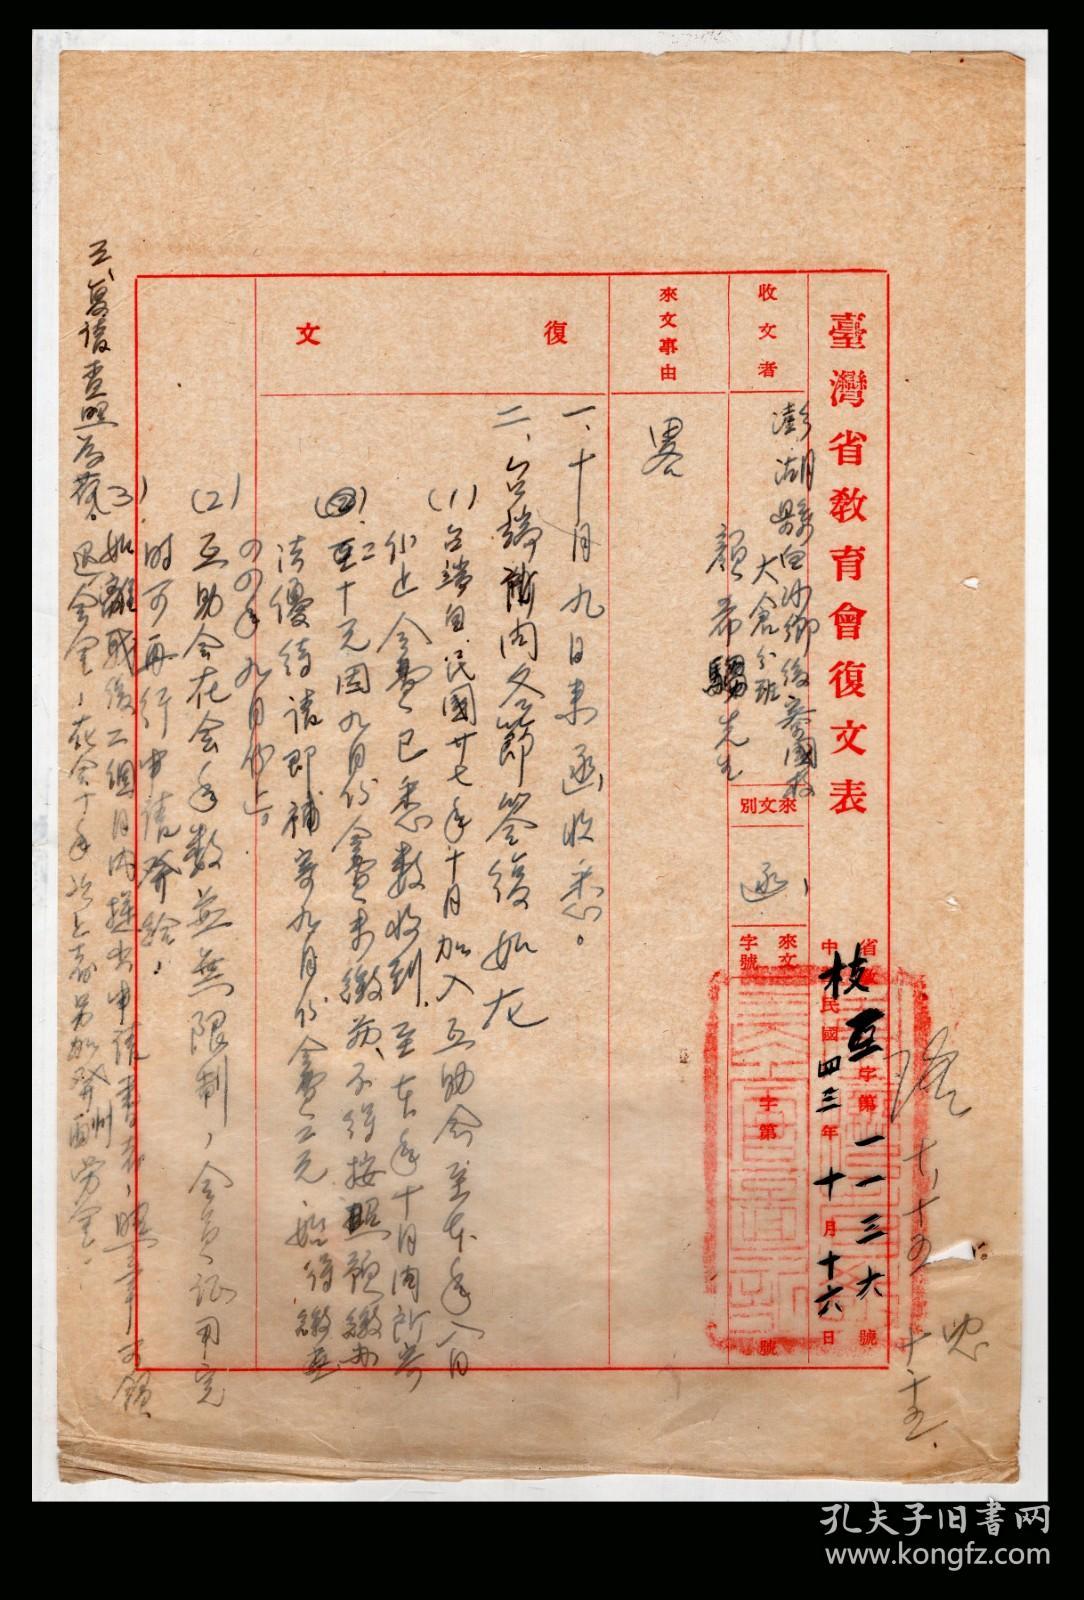 臺灣省教育會復文表
省教
枝互字第一一三六號
中華民國四三年十月十六日
收文者
澎湖縣白沙鄉後寮國校
大倉分班
顏希騶先生
來文別
函
來文字號
字第
號
來文事由
畧
復文
一、十月九日來函收悉。
二、台端所詢各節簽復如左
(1)台端自民國卅七年十月加入互助会至本年八月
份止会費已悉数收到,至本年十月内所寄
十元因九月份會費未繳前、不得按照預繳办
法優待請即補寄九月份會費二元,始得繳至
四四年九月份止。
(2)互助会在会年数並無限制,会員证用完
時可再行申請發給,
(3)如離職後二個月内提出申請書表,照章可領
退会金,在会十年以上者另加發酬勞金,
三、復請查照為荷。
十、十五
孔夫子旧书网
www.kongfz.com